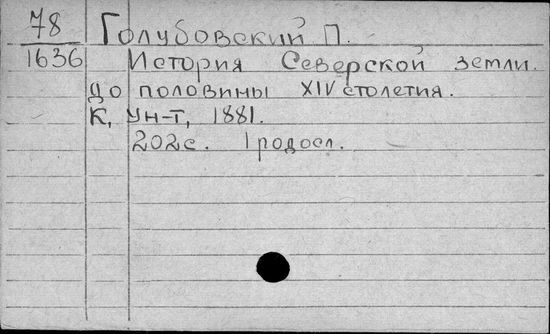 78 Голубовский П.
1636 История Северской земли.
до половины XIV столетия.
К, Ун-т, 1881.
202с. 1 родосл.